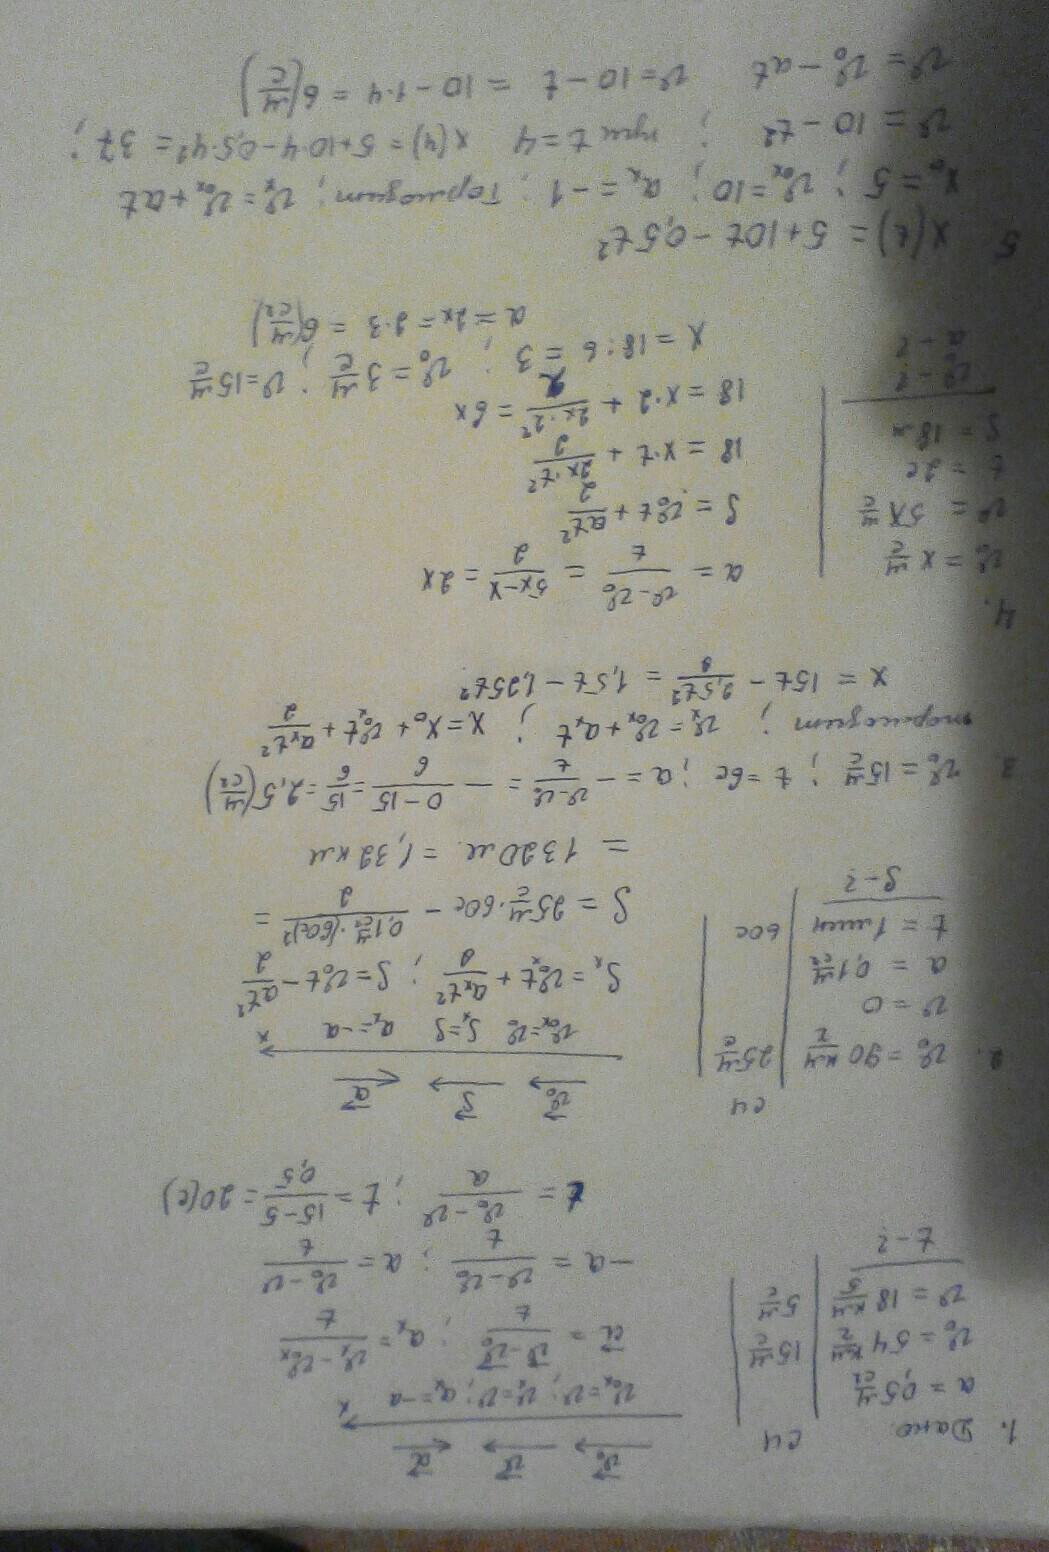 1. Дано: СИ
a = 0,5 м/с²
v₀ = 54 км/ч 15 м/с
v = 18 км/ч 5 м/с
t - ?
v⃗₀ v⃗ a⃗
v₀ₓ = v; vₓ = v; aₓ = -a x
a⃗ = (v⃗ - v⃗₀)/t ; aₓ = (vₓ - v₀ₓ)/t
-a = (v - v₀)/t ; a = (v₀ - v)/t
t = (v₀ - v)/a ; t = (15-5)/0,5 = 20(с)
2. СИ
v₀ = 90 км/ч 25 м/с
v = 0
a = 0,1 м/с²
t = 1 мин 60с
S - ?
v⃗₀ S⃗ a⃗
v₀ₓ = v₀ Sₓ = S aₓ = -a x
Sₓ = v₀ₓt + aₓt²/2 ; S = v₀t - at²/2
S = 25 м/с · 60с - 0,1 м/с² · (60с)²/2 =
= 1320 м = 1,32 км
3. v₀ = 15 м/с ; t = 6с ; a = - (v - v₀)/t = - (0 - 15)/6 = 15/6 = 2,5 (м/с²)
тормозит ; vₓ = v₀ₓ + aₓt ; x = x₀ + v₀ₓt + aₓt²/2
x = 15t - 2,5t²/2 = 1,5t - 1,25t²
4.
v₀ = x м/с
v = 5x м/с
t = 2с
S = 18 м
v₀ - ?
a - ?
a = (v - v₀)/t = (5x - x)/2 = 2x
S = v₀t + at²/2
18 = x·t + 2x·t²/2
18 = x·2 + 2x·2²/2 = 6x
x = 18 : 6 = 3 ; v₀ = 3 м/с ; v = 15 м/с
a = 2x = 2·3 = 6 (м/с²)
5 x(t) = 5 + 10t - 0,5t²
x₀ = 5 ; v₀ₓ = 10 ; aₓ = -1 ; Тормозит ; vₓ = v₀ₓ + at
v = 10 - t² ; при t = 4 x(4) = 5 + 10·4 - 0,5·4² = 37 ;
v = v₀ - at v = 10 - t = 10 - 1·4 = 6 (м/с)